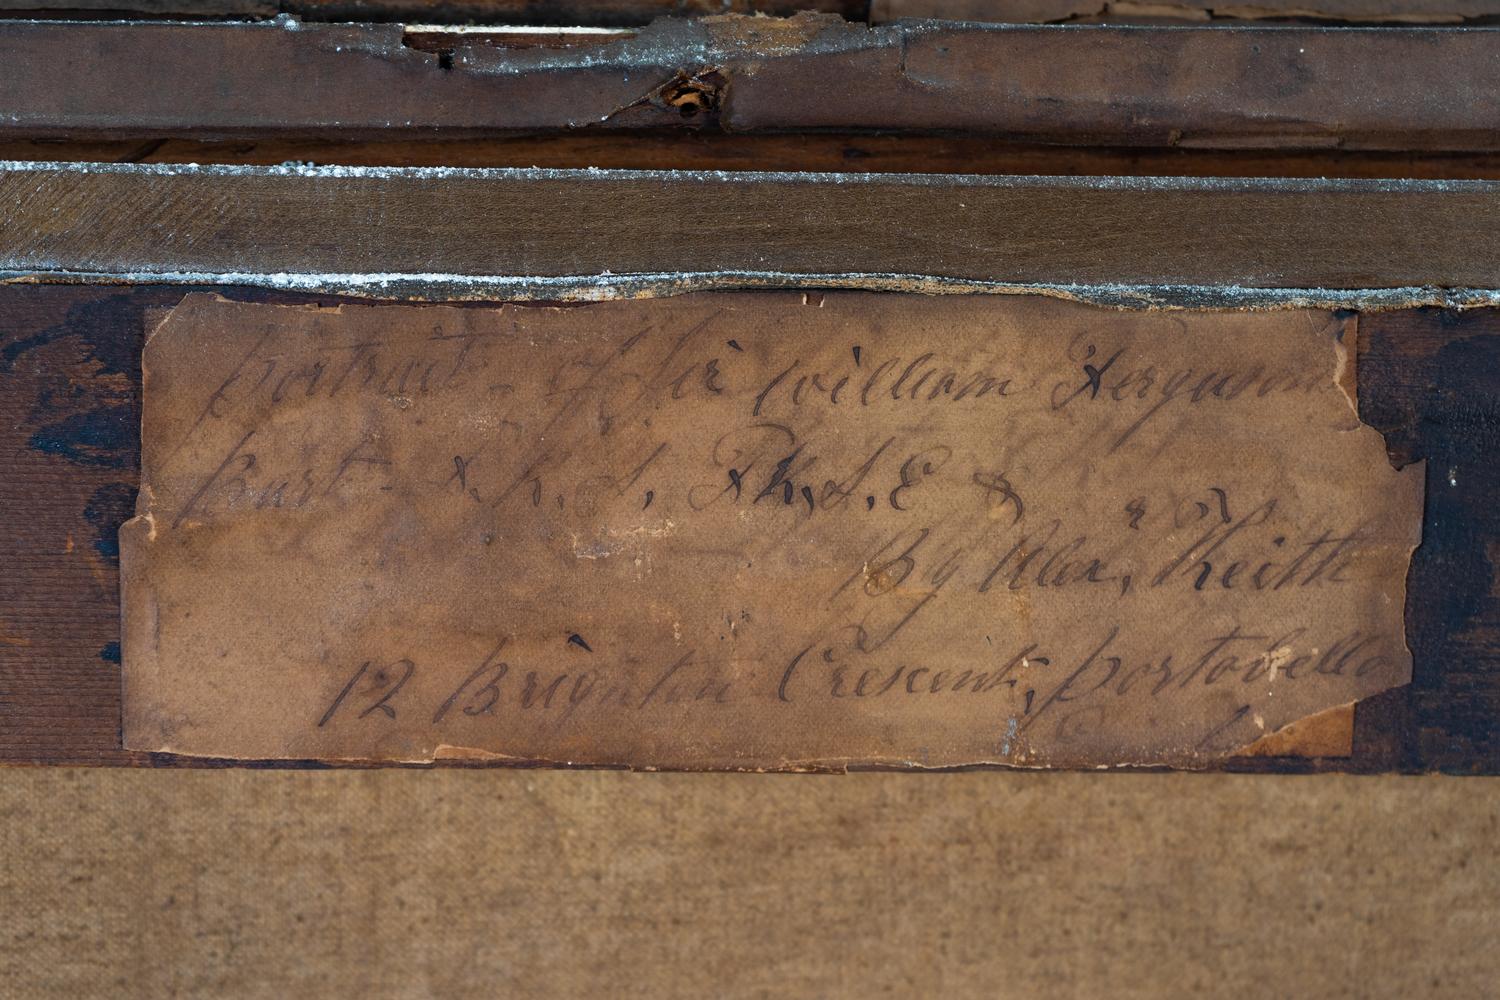 Portrait - of Sir William Ferguson
Bart - F. R. S. F.R.S.E &
By Alex. Keith
12 Brighton Crescent, Portobello